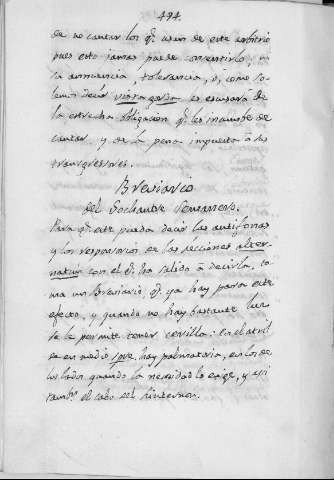 494.
de no cantar los q.e usan de este arbitrio
pues esto jamas puede consentirlo, ni
la anuencia, tolerancia, ó, como so-
lemos decir vista gorda les escusará de
la estrecha obligacion q.e les incumbe de
cantar, y de la pena impuesta á sus
transgresores.
Breviario
del Sochantre Semanero.
Para q.e este pueda decir las antifonas
y los responsorios de las lecciones alter-
natim con el q.e ha salido á decirla, to-
ma un Breviario q.e ya hay para este
efecto, y quando no hay bastante luz
se le permite tener cerilla: en el atril
de en medio spre. hay palmatoria, en los de
los lados quando la necesidad lo exige, y asi
tamb.n el cabo del Hinternon.